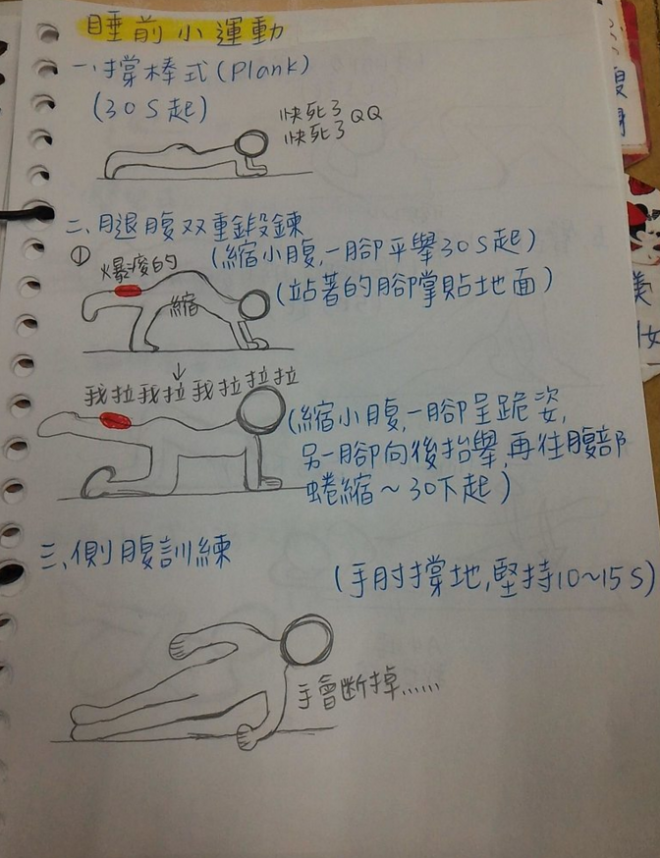 睡前小運動
一、撐棒式(Plank)
(30S起)
快死了QQ
快死了
二、腿腹双重鍛鍊
①
爆痠的
(縮小腹,一腳平舉30S起)
(站著的腳掌貼地面)
縮
↓
我拉我拉我拉拉拉
(縮小腹,一腳呈跪姿,
另一腳向後抬舉,再往腹部
蜷縮~30下起)
三、側腹訓練
(手肘撐地,堅持10~15S)
手會断掉……
美
女